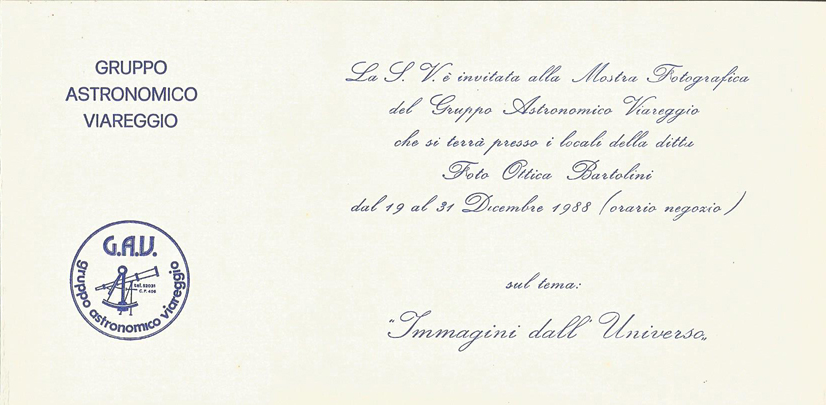 GRUPPO
ASTRONOMICO
VIAREGGIO
G.A.V.
gruppo astronomico viareggio
La S. V. è invitata alla Mostra Fotografica
del Gruppo Astronomico Viareggio
che si terrà presso i locali della ditta
Foto Ottica Bartolini
dal 19 al 31 Dicembre 1988 (orario negozio)
sul tema:
"Immagini dall'Universo"